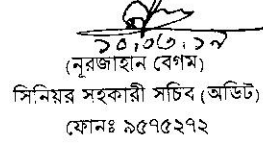 ১০.০৬.১৯
(নূরজাহান বেগম)
সিনিয়র সহকারী সচিব (অডিট)
ফোনঃ ৯৫৭৫২৭২